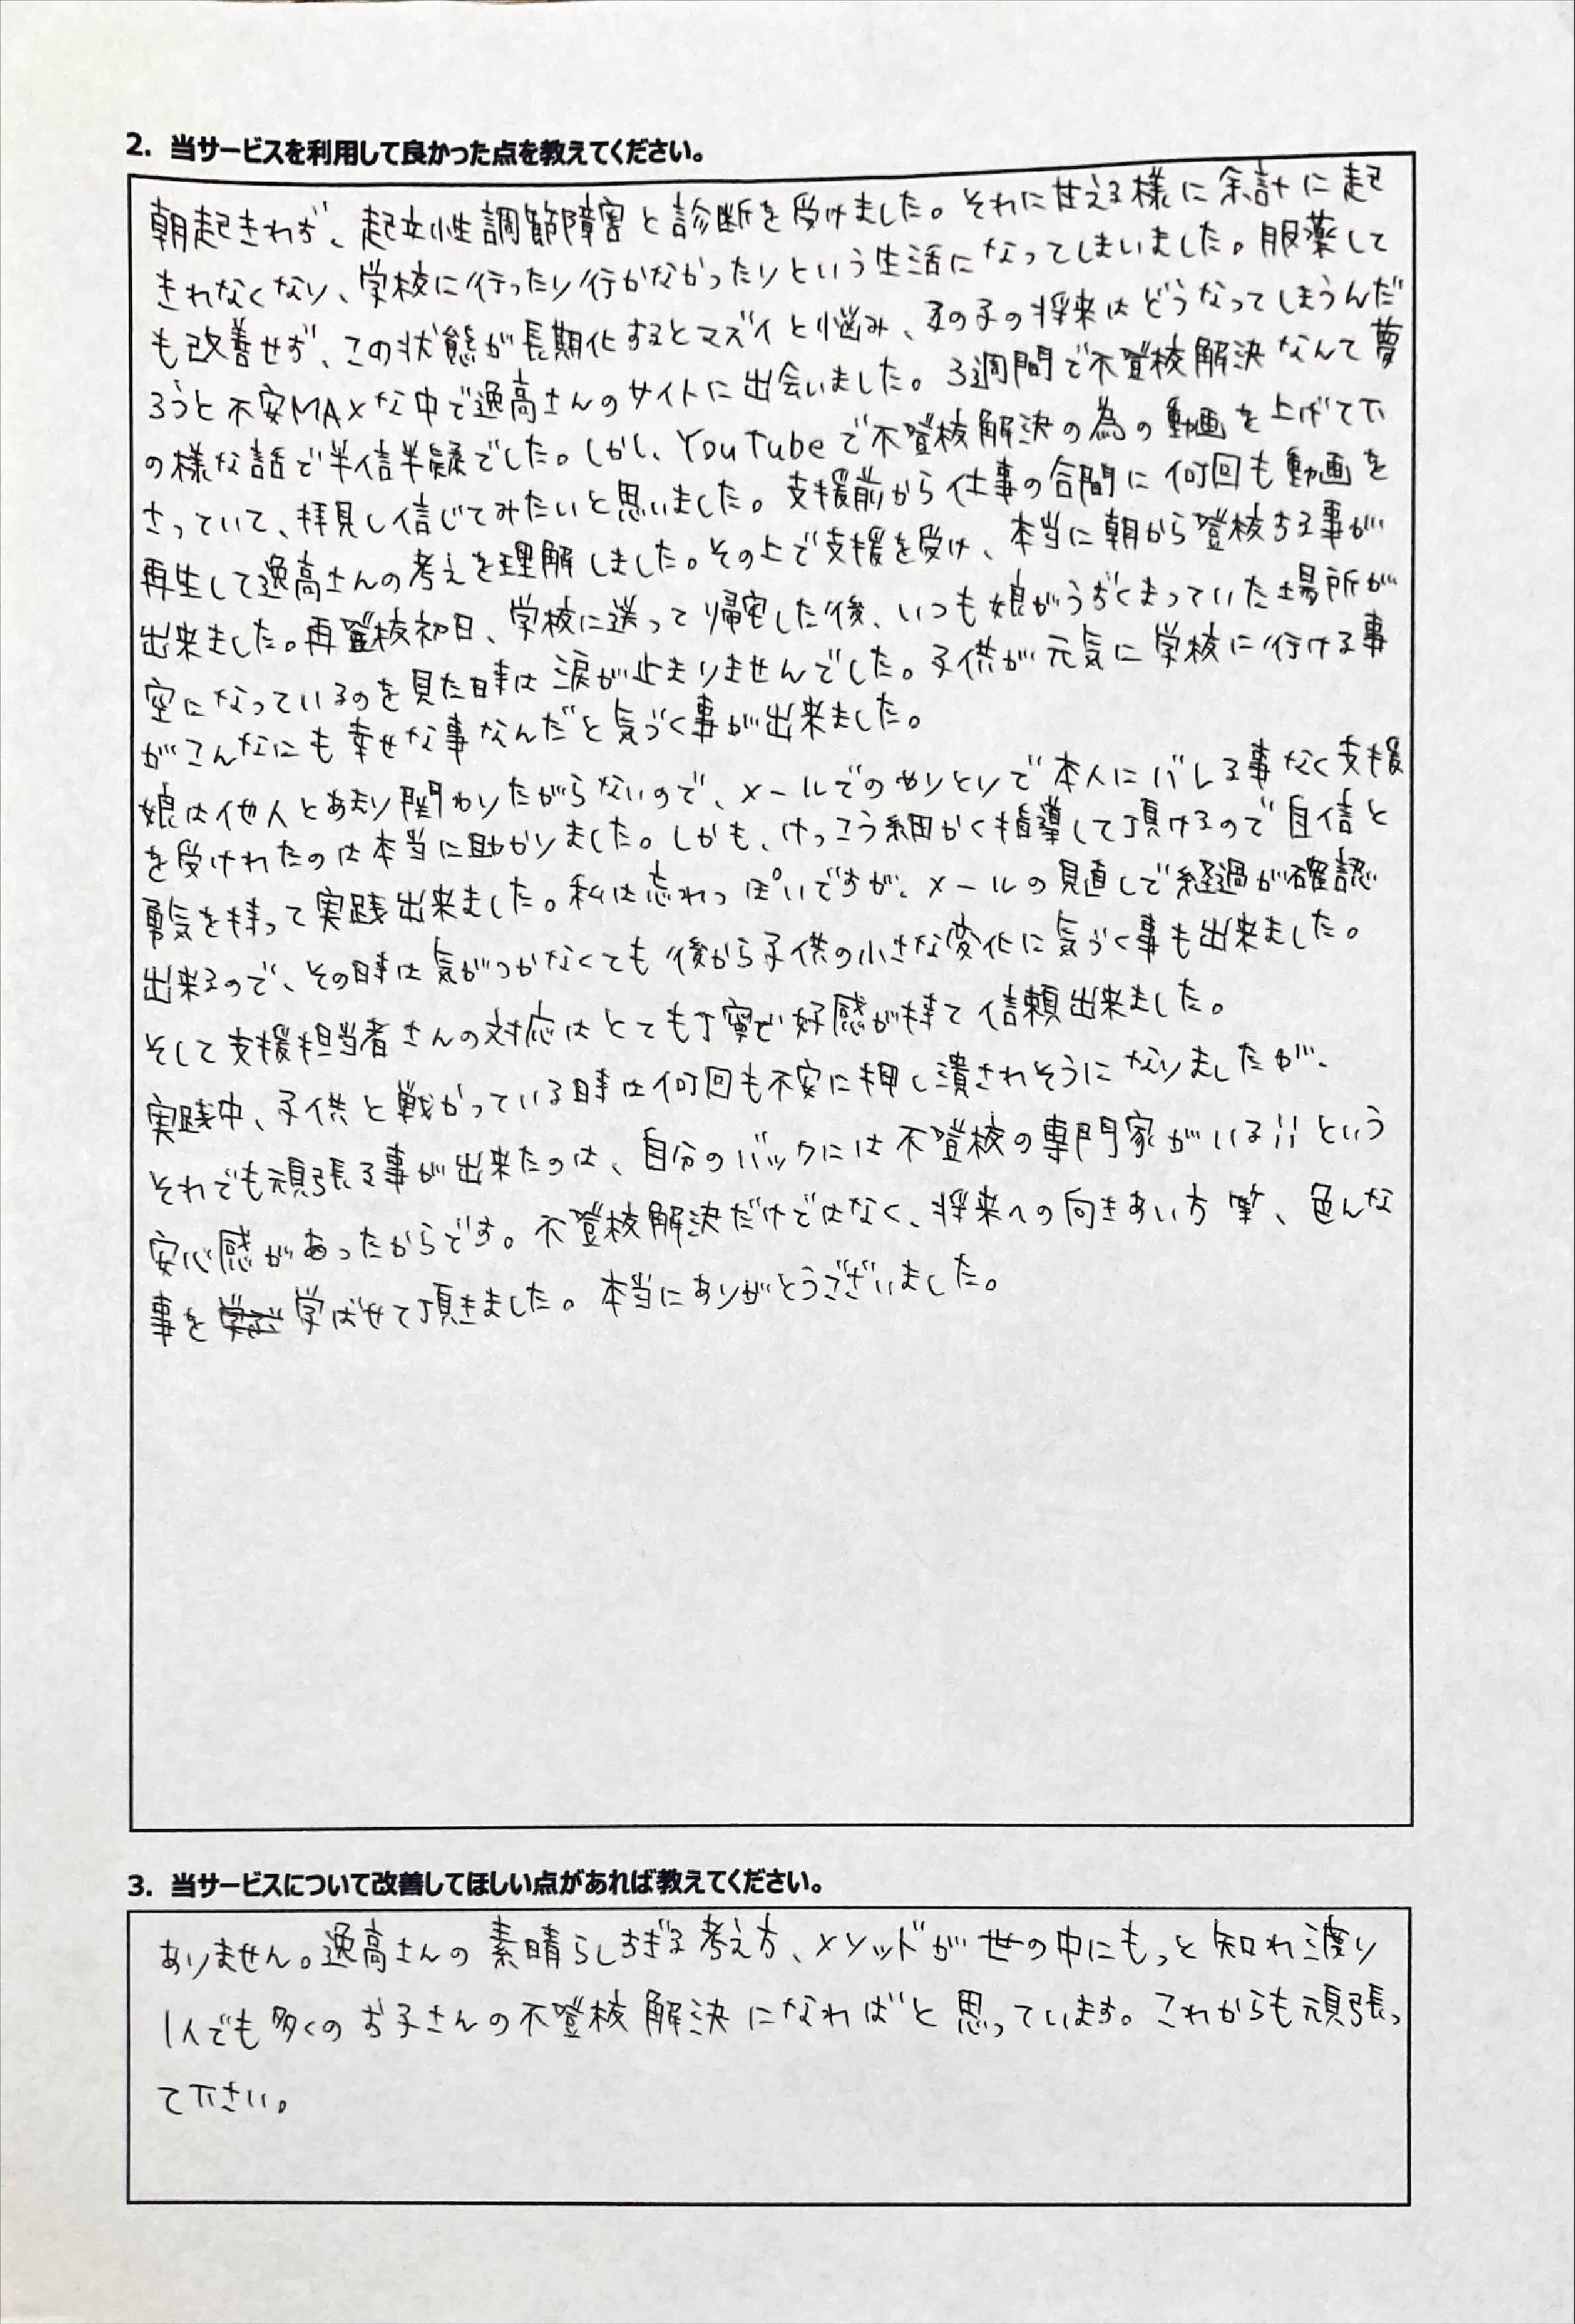 2. 当サービスを利用して良かった点を教えてください。
朝起きれず、起立性調節障害と診断を受けました。それに甘える様に余計に起
きれなくなり、学校に行ったり行かなかったりという生活になってしまいました。服薬して
も改善せず、この状態が長期化するとマズイと悩み、この子の将来はどうなってしまうんだ
ろうと不安MAXな中で逸高さんのサイトに出会いました。3週間で不登校解決なんて夢
の様な話で半信半疑でした。しかし、YouTubeで不登校解決の為の動画を上げて下
さっていて、拝見し信じてみたいと思いました。支援前から仕事の合間に何回も動画を
再生して逸高さんの考えを理解しました。その上で支援を受け、本当に朝から登校する事が
出来ました。再登校初日、学校に送って帰宅した後、いつも娘がうずくまっていた場所が
空になっているのを見た時は涙が止まりませんでした。子供が元気に学校に行ける事
がこんなにも幸せな事なんだと気づく事が出来ました。
娘は他人とあまり関わりたがらないので、メールでのやりとりで本人にバレる事なく支援
を受けれたのは本当に助かりました。しかも、けっこう細かく指導して頂けるので自信と
勇気を持って実践出来ました。私は忘れっぽいですが、メールの見直しで経過が確認
出来るので、その時は気がつかなくても後から子供の小さな変化に気づく事も出来ました。
そして支援担当者さんの対応はとても丁寧で好感が持て信頼出来ました。
実践中、子供と戦かっている時は何回も不安に押し潰されそうになりましたが、
それでも頑張る事が出来たのは、自分のバックには不登校の専門家がいる!!という
安心感があったからです。不登校解決だけではなく、将来への向きあい方等、色んな
事を学ばせて頂きました。本当にありがとうございました。
3. 当サービスについて改善してほしい点があれば教えてください。
ありません。逸高さんの素晴らしすぎる考え方、メソッドが世の中にもっと知れ渡り
1人でも多くのお子さんの不登校解決になればと思っています。これからも頑張っ
て下さい。